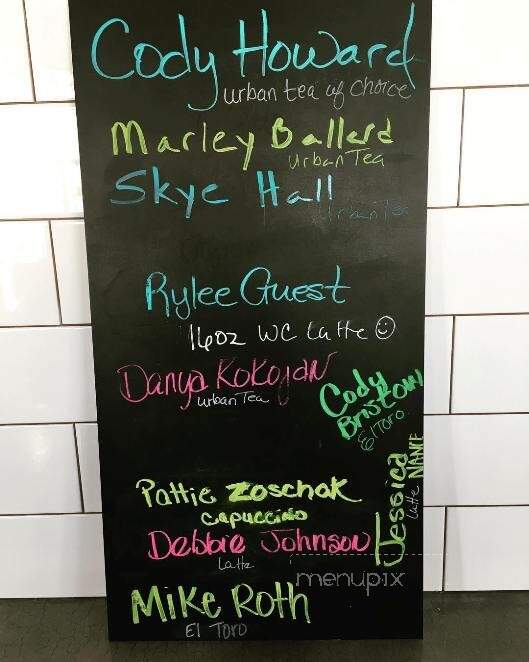 Cody Howard
urban tea of choice
Marley Ballard
Urban Tea
Skye Hall
Urban Tea
Rylee Guest
16oz WC Latte ☺
Danya Kokojan
urban Tea
Cody
Bristow
El Toro
Pattie Zoschak
Capuccino
Debbie Johnson
Latte
Jessica NANCE
Latte
Mike Roth
El Toro
menupix